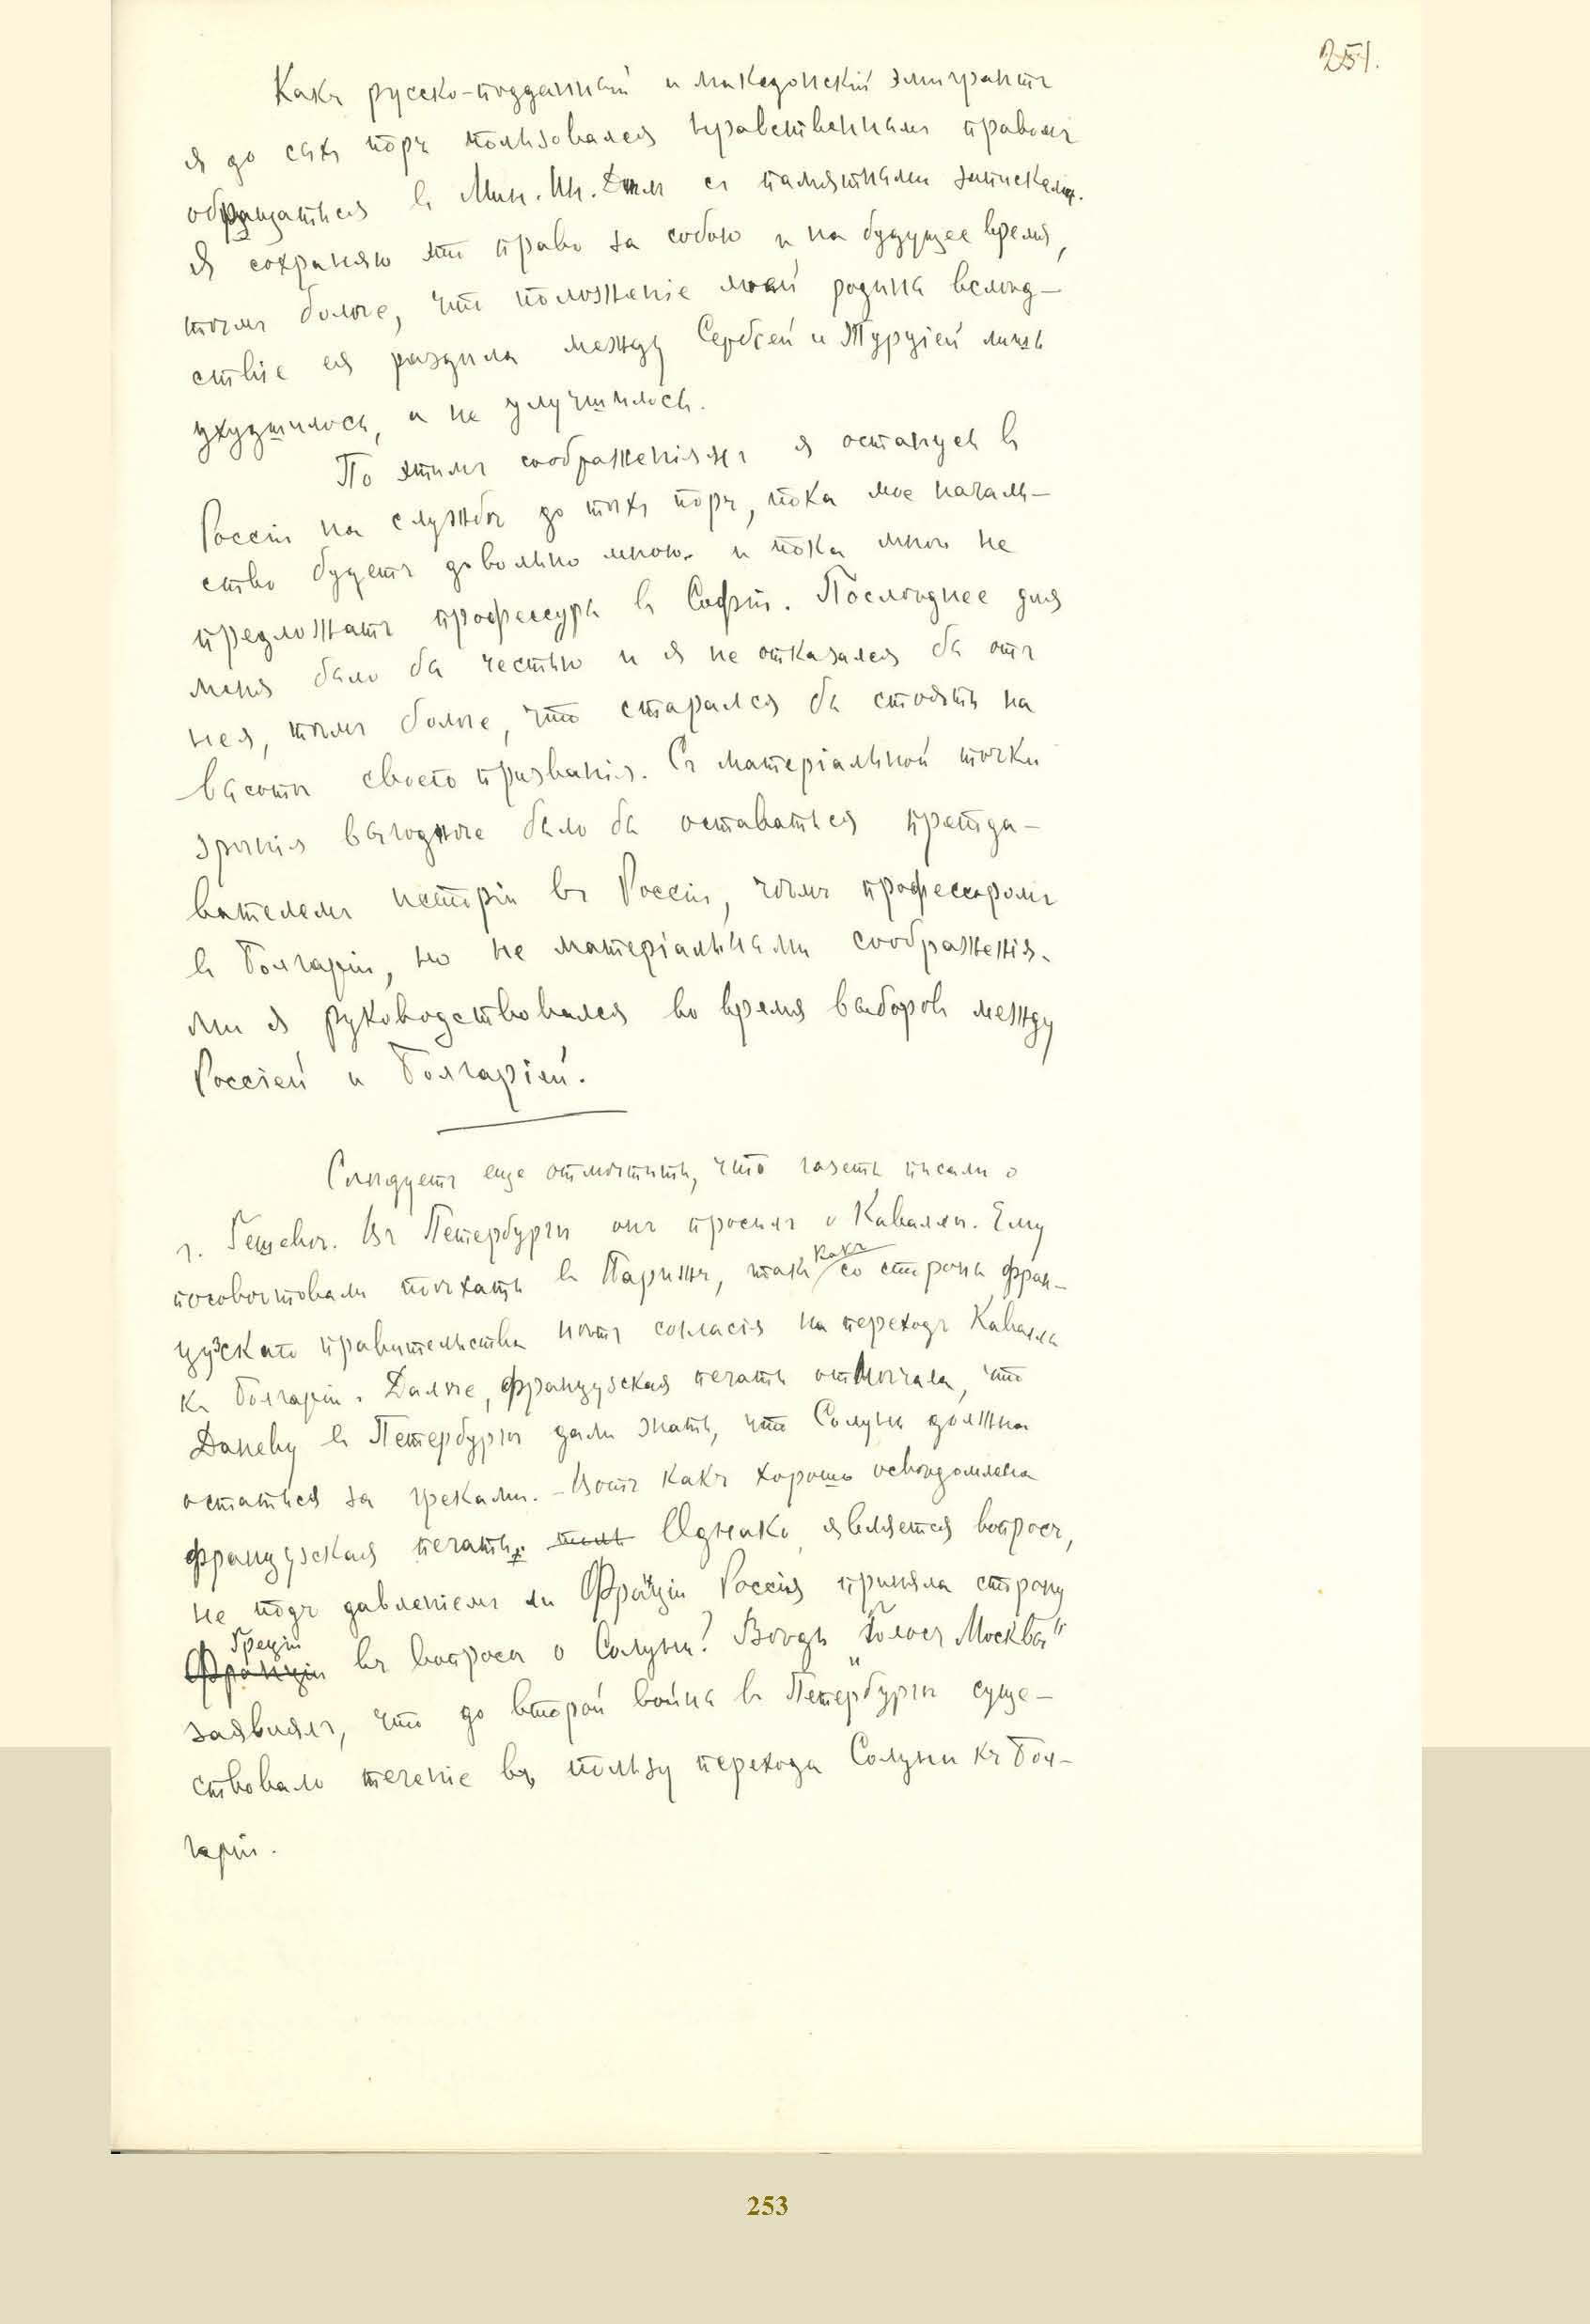 251.
Какъ русско-подданный и македонскій эмигрантъ
я до сихъ поръ пользовался нравственнымъ правомъ
обращаться въ Мин. Ин. Дѣл съ памятными записками.
Я сохраняю это право за собою и на будущее время,
тѣмъ болѣе, что положеніе моей родины вслѣд-
ствіе ея раздѣла между Сербіей и Турціей лишь
ухудшилось, а не улучшилось.
По этимъ соображеніямъ я останусь въ
Россіи на службѣ до тѣхъ поръ, пока мое началь-
ство будетъ довольно мною и пока мнѣ не
предложатъ профессуры въ Софіи. Послѣднее для
меня было бы честью и я не отказался бы отъ
нея, тѣмъ болѣе, что старался бы стоять на
высотѣ своего призванія. Съ матеріальной точки
зрѣнія выгоднѣе было бы оставаться препода-
вателемъ исторіи въ Россіи, чѣмъ профессоромъ
въ Болгаріи, но не матеріальными соображенія-
ми я руководствовался во время выборовъ между
Россіей и Болгаріей.
Слѣдуетъ еще отмѣтить, что газеты писали о
г. Гешевѣ. Въ Петербургѣ онъ просилъ о Каваллѣ. Ему
посовѣтовали поѣхать въ Парижъ, такъ какъ со стороны фран-
цузскаго правительства нѣтъ согласія на переходъ Каваллы
къ Болгаріи. Далѣе, французская печать отмѣчала, что
Даневу въ Петербургѣ дали знать, что Солунь должна
остаться за греками. - Вотъ какъ хорошо освѣдомлена
французская печать. Однако, является вопросъ,
не подъ давленіемъ ли Франціи Россія приняла сторону
Франціи Греціи въ вопросѣ о Солуни? Вѣдь „Голосъ Москвы"
заявлялъ, что до второй войны въ Петербургѣ суще-
ствовало теченіе въ пользу перехода Солуни къ Бол-
гаріи.
253